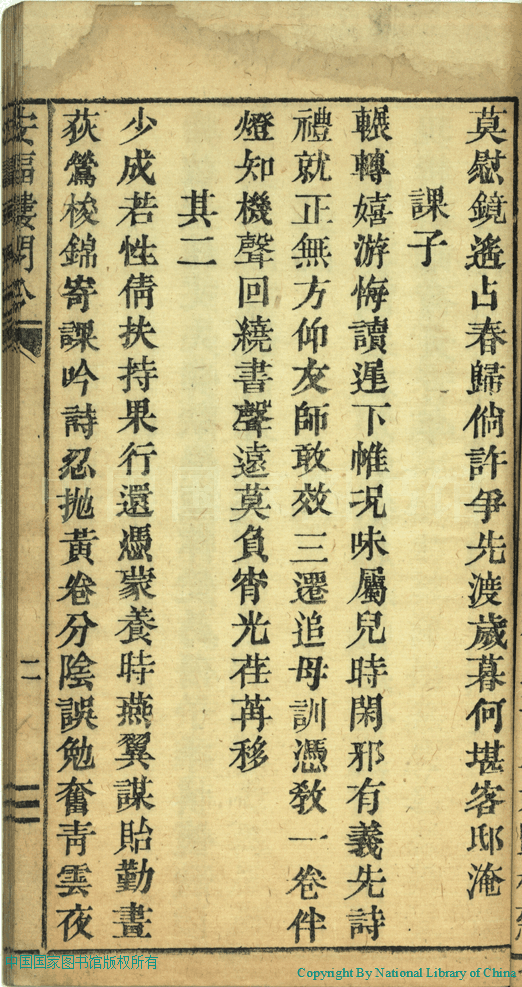 莫慰鏡遙占春歸倘許爭先渡歲暮何堪客邸淹
課子
輾轉嬉游悔讀遲下帷況味屬兒時閑邪有義先詩
禮就正無方仰友師敢效三遷追母訓憑教一卷伴
燈知機聲回繞書聲遠莫負宵光荏苒移
其二
少成若性倩扶持果行還憑蒙養時燕翼謀貽勤晝
荻鶯梭錦寄課吟詩忍拋黃卷分陰誤勉奮青雲夜
二
中国国家图书馆版权所有
Copyright By National Library of China